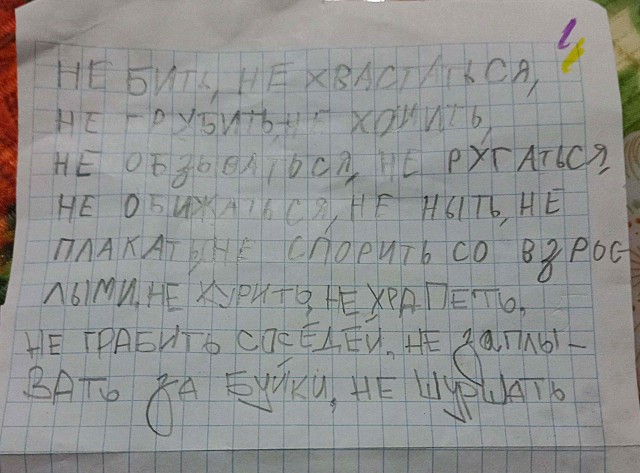 НЕ БИТЬ, НЕ ХВАСТАТЬСЯ,
НЕ ГРУБИТЬ, НЕ ХОМИТЬ,
НЕ ОБЗЫВАТЬСЯ, НЕ РУГАТЬСЯ,
НЕ ОБИЖАТЬСЯ, НЕ НЫТЬ, НЕ
ПЛАКАТЬ, НЕ СПОРИТЬ СО ВЗРОС
ЛЫМИ, НЕ КУРИТЬ, НЕ ХРАПЕТЬ,
НЕ ГРАБИТЬ СОСЕДЕЙ, НЕ ЗАПЛЫ-
ВАТЬ ЗА БУЙКИ, НЕ ШУРШАТЬ